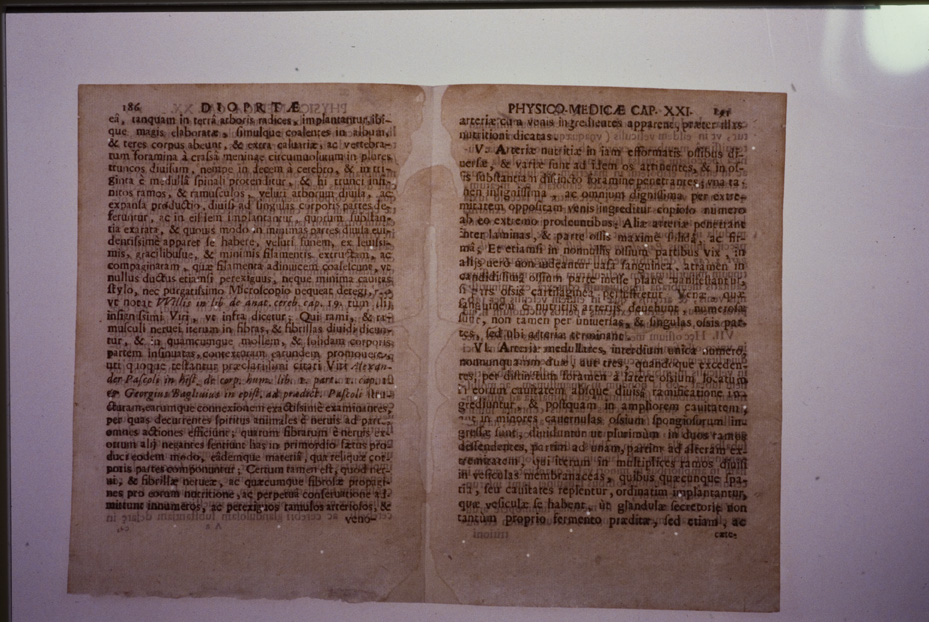 186 DIOPRTÆ
ea, tanquam in terra arboris radices, implantantur, ibi-
que magis elaboratæ, simulque coalentes in album,
& teres corpus abeunt, & extra caluariæ, ac vertebra-
rum foramina à crassa meninge circumuolutum in plures
truncos diuisum, nempe in decem à cerebro, & in tri-
ginta è medulla spinali protenditur, & hi trunci infi-
nitos ramos, & ramusculos, veluti arborum diuisa, ac
expansa productio, diuisi ad singulas corporis partes de-
feruntur, ac in eisdem implantantur, quorum substan-
tia exarata, & quouis modo in minimas partes diuisa eui-
dentissime apparet se habere, veluti funem, ex leuissi-
mis, gracilibusque, & minimis filamentis extructam, ac
compaginatam, quæ filamenta adinuicem coalescunt, vt
nullus ductus etiamsi perexiguus, neque minima cauitas
stylo, nec purgatissimo Microscopio nequeat detegi,
vt notat Willis in lib de anat. cereb. cap. 19. tum alij
insignissimi Viri, vt infra dicetur; Qui rami, & ra-
musculi neruei iterum in fibras, & fibrillas diuidi dicun-
tur, & in quamcumque mollem, & solidam corporis
partem insinuatas, contextoram earundem promouere,
uti quoque testantur præclarissimi citati Viri Alexan-
der Pascoli in hist. de corp. hum. lib. 1. part. 1. cap.
& Georgius Bagliuius in epist. ad prædict. Pascoli stru-
cturam, earumque connexionem exactissimè examinantes,
per quas decurrentes spiritus animales è neruis ad partes
omnes actiones efficiunt; quarum fibrarum è neruis ex-
ortum alij negantes sentiunt has in primordio fætus pro-
duci eodem modo, eademque materia, qua reliquæ cor-
poris partes componuntur; Certum tamen est, quod ner-
ui, & fibrillæ nerueæ, ac quæcumque fibrosæ propagi-
nes pro eorum nutritione, ac perpetua conseruatione ad-
mittunt innumeros, ac perexiguos ramulos arteriosos, &
veno-
PHYSICO-MEDICÆ CAP. XXI.
arteriæ cum venis ingredientes apparent, præter illas
nutritioni dicatas.
V. Arteriæ nutritiæ in iam efformatis ossibus di-
uersæ, & variæ sunt ad idem os attinentes, & in os-
sis substantiam distincto foramine penetrantes; una ta-
men insignissima, ac omnium dignissima per extre-
mitatem oppositam venis ingreditur copioso numero
ab eo extremo prodeuntibus; Aliæ arteriæ penetrant
inter laminas, & parte ossis maxime solida, ac fir-
ma; Et etiamsi in nonnullis ossium partibus vix, in
alijs uero non uideantur uasa sanguinea, attamen in
candidissima ossium parte inesse plane manifestantur,
si prius ossa cartilaginea perlustretur. Venæ, quæ
sanguinem è nutritijs arterijs deuehunt, numerosæ
sunt, non tamen per uniuersas, & singulas ossis par-
tes, sed ubi arteriæ terminant.
VI. Arteriæ medullares, interdum unica numero,
nonnunquam duæ, aut tres, quandoque exceden-
tes, per distinctum foramen à latere ossium locatum
in eorum cauitatem absque diuisa ramificatione in-
grediuntur, & postquam in ampliorem cauitatem,
aut in minores cauernulas ossium spongiosorum in-
gressæ sunt, diuiduntur ut plurimum in duos ramos
descendentes, partim ad unam, partim ad alteram ex-
tremitatem, qui iterum in multiplices ramos diuisi
in vesiculas membranaceas, quibus quæcunque spa-
tia, seu cauitates replentur, ordinatim implantantur,
quæ vesiculæ se habent, ut glandulæ secretoriæ non
tantum proprio fermento præditæ, sed etiam, ac
cæte-